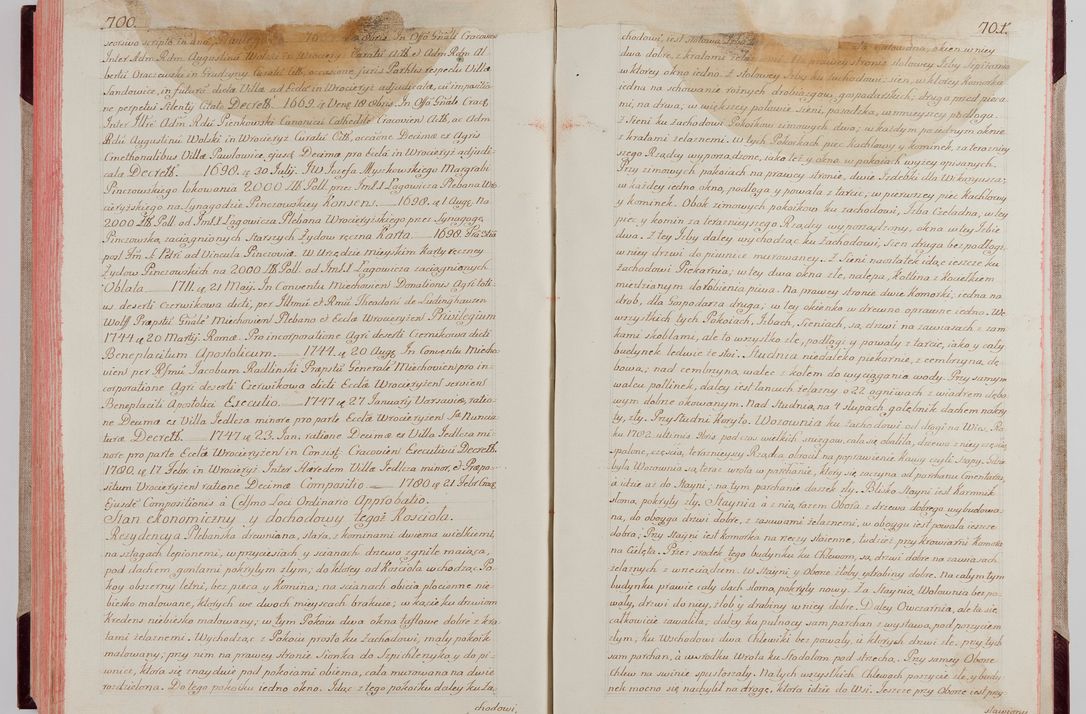 700.
seorsivo scripto in ana
Inter Adm. Rdm. Augustinū Wolski in Wrocieryż Curatū Actb. et Adm. Rdm. Al
bertū Oraczewski in Gradzyny Curatū Citb. occasione juris Parttis respectu Villæ
Sandowice, in futurū dicta Villa ad Ecclā in Wrocieryż adjudicata, cū impositio
ne perpetui silentij Citat. Decretū. 1669. ię Vene 18 8bris. In Offo Gnāle Crac.
Inter Illre Adm. Rdū Pienkowski Canonicū Cathedītē Cracovien Actb. ac Adm
Rdū Augustinū Wolski in Wrocieryż Curatū Citb. occōne Decimæ ex Agris
Cmethonalibus Villæ Pawlowice, ejusq Decima pro Ecclā in Wrocieryż adjudi-
cata Decretū. 1690. ię 30 Julij. JW Jozefa Myszkowskiego Margrabi
Pinczowskiego lokowania 2000 Zł Poll. przez Jmś X Łagowicza Plebana Wro
cieryżskiego na Synagodzie Pinczowskiey Konsens. 1698. ię 1 Aug. Na
2000 Zł Poll. od Jmś X Łagowicza Plebana Wrocieryżskiego przez Synagogę
Pinczowską zaciągnionych Starszych Żydow ręczna Karta. 1698.
post Fm S. Petri ad Vincula Pinczoviæ. W Urzędzie mieyskim Karty ręczney
Żydow Pinczowskich na 2000 Zł Poll. od Jmś X Łagowicza zaciągnionych
Oblata. 1711. ię 21 Maij. In Conventu Miechovien Donationis Agri toti-
us deserti Czerwikowa dicti, per Illmū et Rmū Theodorū de Ludinghausen
Wolff Præpstū Gnāle Miechovien Plebano et Ecclæ Wrocieryżen Privilegium
1744. ię 20 Martij Romæ. Pro incorporatione Agri deserti Czernikowa dicti
Beneplacitum Apostolicum. 1744. ię 20 Aug. In Conventu Miecho-
vien per Rmū Jacobum Radlinski Præpstū Generale Miechovien pro in-
corporatione Agri deserti Czerwikowa dicti Ecclæ Wrocieryżen servien
Beneplaciti Apostolici Executio. 1747 ię 27 January Varsaviæ, ratio-
ne Decimæ ex Villa Jedleza minore pro parte Ecclæ Wrocieryżen Sæ Nuncia
turæ Decretū. 1747 ię 23. Jan. ratione Decimæ ex Villa Jedleza mi-
nore pro parte Ecclæ Wrocieryżen in Consist. Cracovien Executivū Decretū.
1780. ię 17 Febr. in Wrocieryż Inter Hæredem Villæ Jedleza minor, et Præpo-
situm Wrocieryżen ratione Decimæ Compositio. 1780. ię 21 Febr Crac.
Ejusdē Compositionis à Celsmo Loci Ordinario Approbatio.
Stan ekonomiczny y dochodowy tegoż Kościoła.
Rezydencya Plebańska drewniana, stara, z kominami dwiema wielkiemi,
na sztągach lepionemi, w przyciesiach y scianach drzewo zgniłe maiąca,
pod dachem gontami pokrytym złym, do ktorey od Kościoła wchodząc Po-
koy obszerny letni, bez pieca y komina; na scianach obicia płocienne nie-
biesko malowane, ktorych we dwoch mieyscach brakuie; w kącie ku drzwiom
Kredens niebiesko malowany; w tym Pokoiu dwa okna taflowe dobre z kra-
tami żelaznemi. Wychodząc z Pokoiu prosto ku Zachodowi, mały pokoik
malowany; przy nim na prawey stronie Sionka do Szpichlerzyka y do pi-
wnice, ktora się znayduie pod pokoiami obiema, cała murowana na dwie
rozdzielona. Do tego pokoiku iedno okno. Idąc z tego pokoiku daley ku Za,
chodowi
701.
chodowi, iest stołowa Izba okien w niey
dwa dobre, z kratami żela Na prawey stronie stołowey Izby Szpiżarnia
w ktorey okno iedno. Z stołowey Izby ku Zachodowi sien, w ktorey Komorka
iedna na schowanie rożnych drobiazgow gospodarskich, druga przed pieca-
mi, na drwa; w większey połowie Sieni, posadzka, w mnieyszey podłoga.
Z Sieni ku Zachodowi Pokoikow zimowych dwa; w każdym po iednym oknie
z kratami żelaznemi. W tych Pokoikach piec kachlowy y kominek, za teraźniey
szego Rządcy wyporządzone, iako też y okna w pokoiach wyżey opisanych.
Przy zimowych pokoiach na prawey stronie, dwie Izdebki dla Wikaryusza;
w każdey iedno okno, podłoga y powała z tarcic, w pierwszey piec kachlowy
y kominek. Obok zimowych pokoikow ku zachodowi, Izba Czeladna, w tey
piec y komin za teraźnieyszego Rządcy wyporządzony, okna w tey Izbie
dwa. Z tey Izby daley wychodząc ku Zachodowi, Sien druga bez podłogi,
w niey drzwi do piwnice murowaney. Z Sieni naostatek idąc ieszcze ku
Zachodowi Piekarnia; w tey dwa okna złe, nalepa, Kotlina z Kociełkiem
miedzianym do robienia piwa. Na prawey stronie dwie Komorki; iedna na
drob, dla Gospodarza druga; w tey okienko w drewno oprawne iedno. We
wszystkich tych Pokoiach, Izbach, Sieniach, są drzwi na zawiasach z zam-
kami skoblami, ale to wszystko złe, podłogi y powały z tarcic, iako y cały
budynek ledwie że stoi. Studnia niedaleko piekarnie, z cembryną dę-
bową; nad cembryną walec z kołem do wyciągania wody. Przy samym
walcu pollinek, daley iest łancuch żelazny o 22. ogniwach z wiadrem dębo-
wym dobrze okowanym. Nad Studnią, na 4 słupach gołębnik dachem nakry
ty, zły. Przy Studni Koryto. Wozownia ku zachodowi od drogi na Wieś. Ro-
ku 1782. ultima Xbris podczas wielkich śniegow, cała się obaliła, drzewo z niey częścią
spalone, częścią, teraźnieyszy Rządca obrocił na poprawienie kuzny czyli szopy. Gdzie
była Wozownia są teraz wrota w parkanie, ktory się zaczyna od parkanu Cmentarza,
á idzie aż do Stayni; na tym parchanie daszek zły. Blisko Stayni iest Karmnik
słomą pokryty zły. Staynia á z nią razem Obora z drzewa dobrego wybudowa-
na, do oboyga drzwi dobre, z zasuwami żelaznemi, w oboygu iest powała ieszcze
dobra; Przy Stayni iest komorka na rzeczy staienne, tudzież przy krowiarni Komorka
na Cielęta. Przez srodek tego budynku ku Chlewom, są drzwi dobre na zawiasach
żelaznych z wrzeciądzem. W Stayni y Oborze żłoby y drabiny dobre. Na całym tym
budynku prawie cały dach słomą pokryty nowy. Za Staynią, Wołownia bez po-
wały, drzwi do niey, żłob y drabiny w niey dobre. Daley Owczarnia, ale ta się
całkowicie zawaliła; daley ku pułnocy sam parchan z wystawą pod poszyciem
złym; ku Wschodowi dwa Chlewiki bez powały, u ktorych drzwi złe, przy tych
sam parchan, á w srodku Wrota ku Stodołom pod strzechą. Przy samey Oborze
Chlew na swinie spustoszały. Na tych wszystkich Chlewach poszycie złe, y budy-
nek mocno się nachylił na drogę, ktora idzie do Wsi. Jeszcze przy Oborze iest przy
stawiony